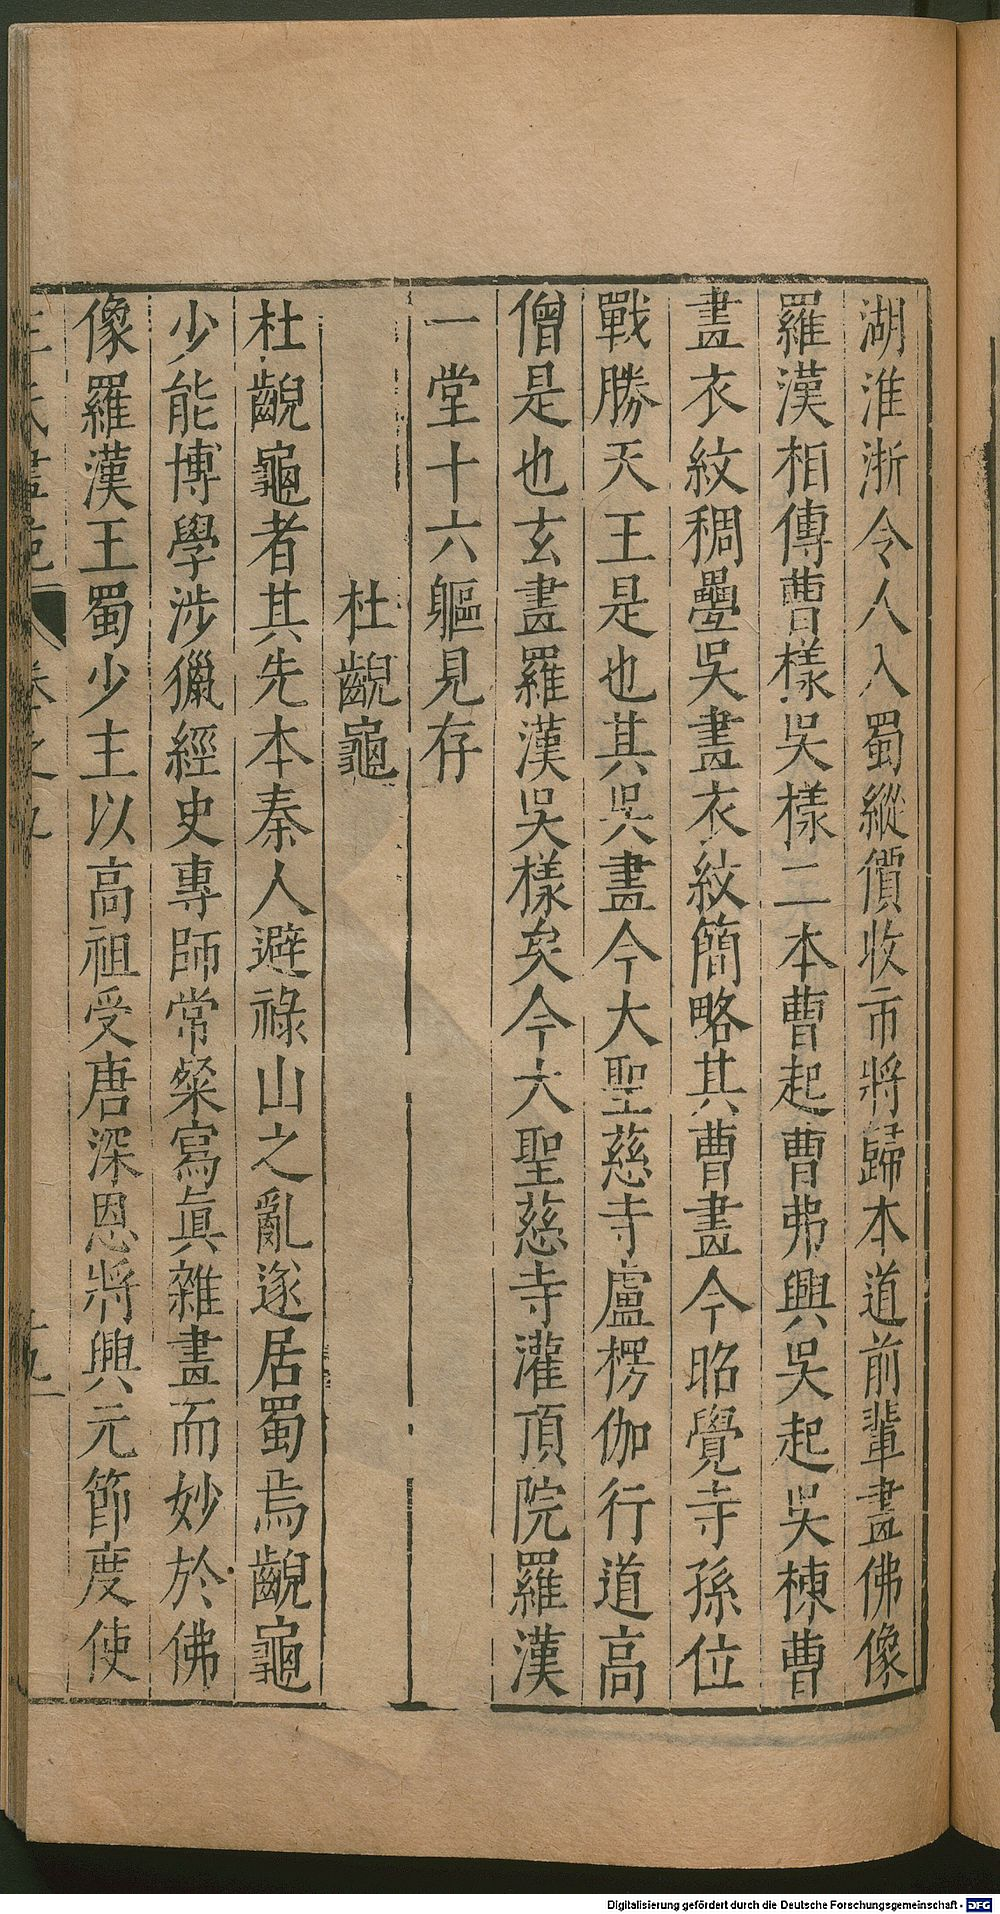 湖淮浙令人入蜀縱價收市將歸本道前輩畫佛像
羅漢相傳曹樣吳樣二本曹起曹弗興吳起吳棟曹
畫衣紋稠疊吳畫衣紋簡略其曹畫今昭覺寺孫位
戰勝天王是也其吳畫今大聖慈寺盧楞伽行道高
僧是也玄畫羅漢吳樣矣今大聖慈寺灌頂院羅漢
一堂十六軀見存
杜齯龜
杜齯龜者其先本秦人避祿山之亂遂居蜀焉齯龜
少能博學涉獵經史專師常粲寫眞雜畫而妙於佛
像羅漢王蜀少主以高祖受唐深恩將興元節度使
王氏畫苑 卷之九 十九
Digitalisierung gefördert durch die Deutsche Forschungsgemeinschaft - DFG